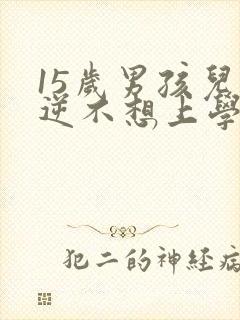 15歲男孩兒
逆不想上學
犯二的神経病